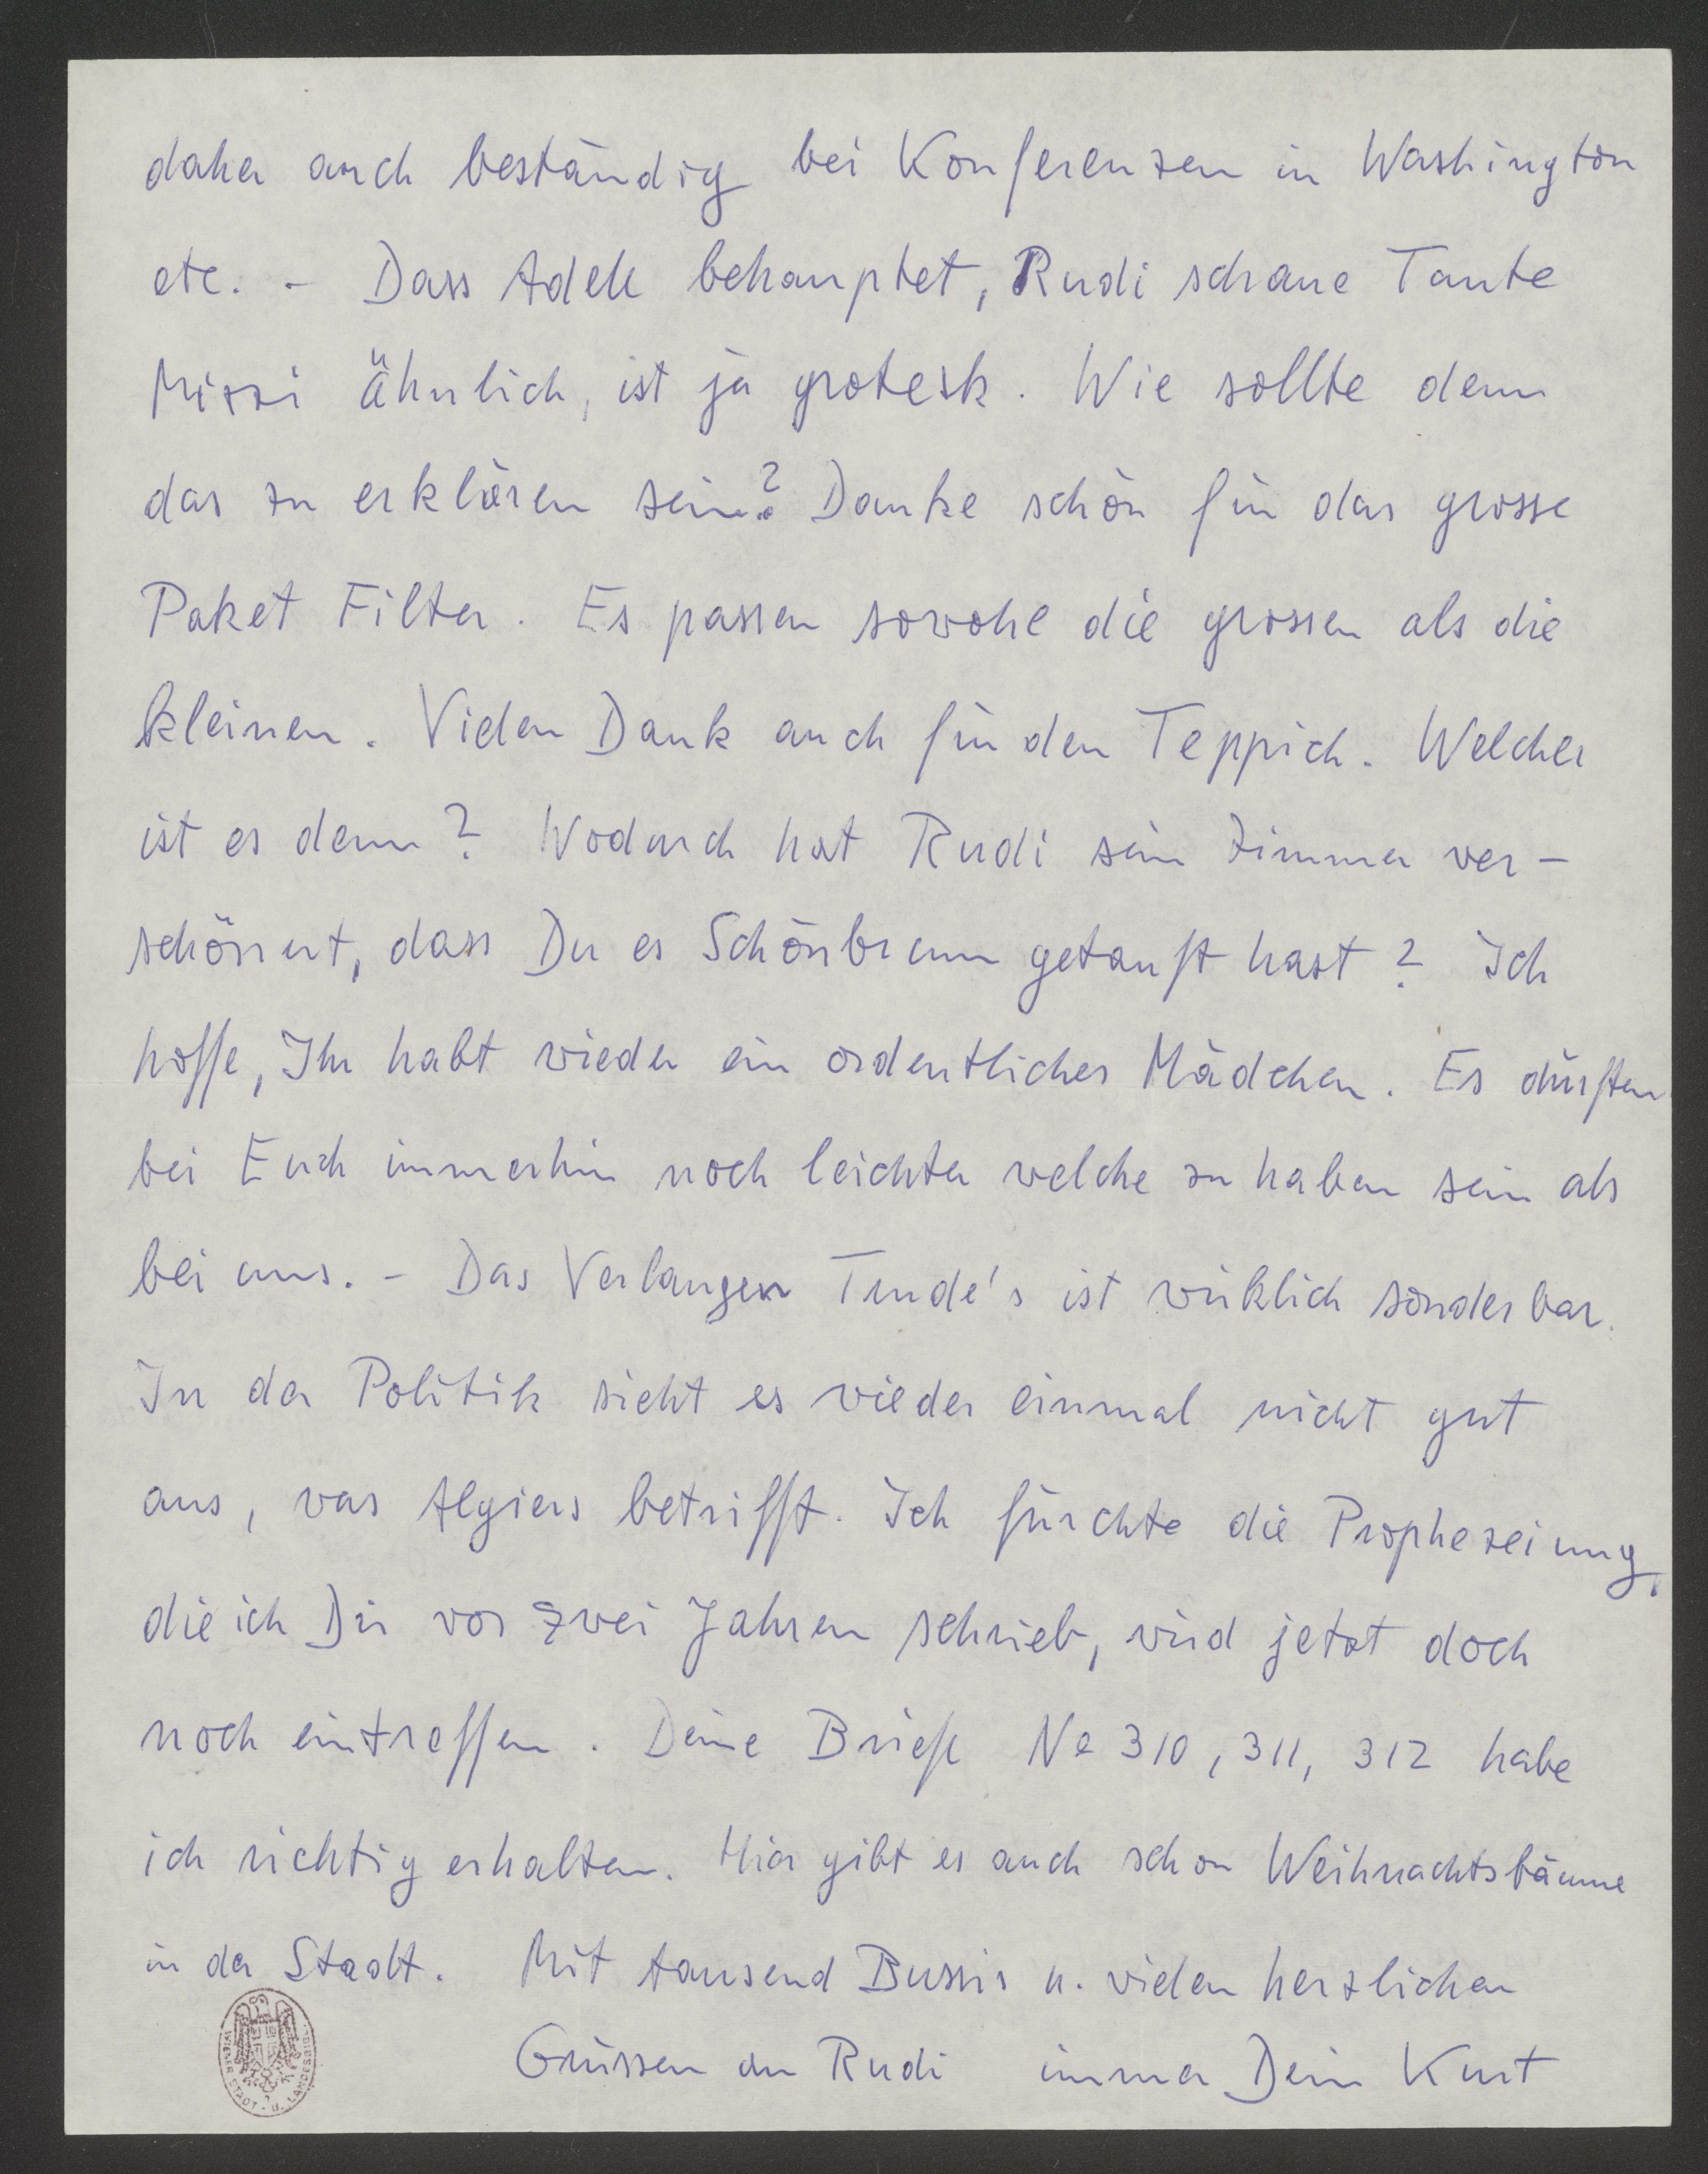 daher auch beständig bei Konferenzen in Washington
etc. - Dass Adele behauptet, Rudi schaue Tante
Mizzi ähnlich, ist ja grotesk. Wie sollte denn
das zu erklären sein? Danke schön für das grosse
Paket Filter. Es passen sowohl die grossen als die
kleinen. Vielen Dank auch für den Teppich. Welcher
ist es denn? Wodurch hat Rudi sein Zimmer ver-
schönert, dass Du es Schönbrunn getauft hast? Ich
hoffe, Ihr habt wieder ein ordentliches Mädchen. Es dürften
bei Euch immerhin noch leichter welche zu haben sein als
bei uns. - Das Verlangen Trude's ist wirklich sonderbar.
In der Politik sieht es wieder einmal nicht gut
aus, was Algiers betrifft. Ich fürchte die Prophezeiung,
die ich Dir vor zwei Jahren schrieb, wird jetzt doch
noch eintreffen. Deine Briefe No 310, 311, 312 habe
ich richtig erhalten. Hier gibt es auch schon Weihnachtsbäume
in der Stadt. Mit tausend Bussis u. vielen herzlichen
Grüssen an Rudi immer Dein Kurt
WIENER STADT- U. LANDESBIBL.